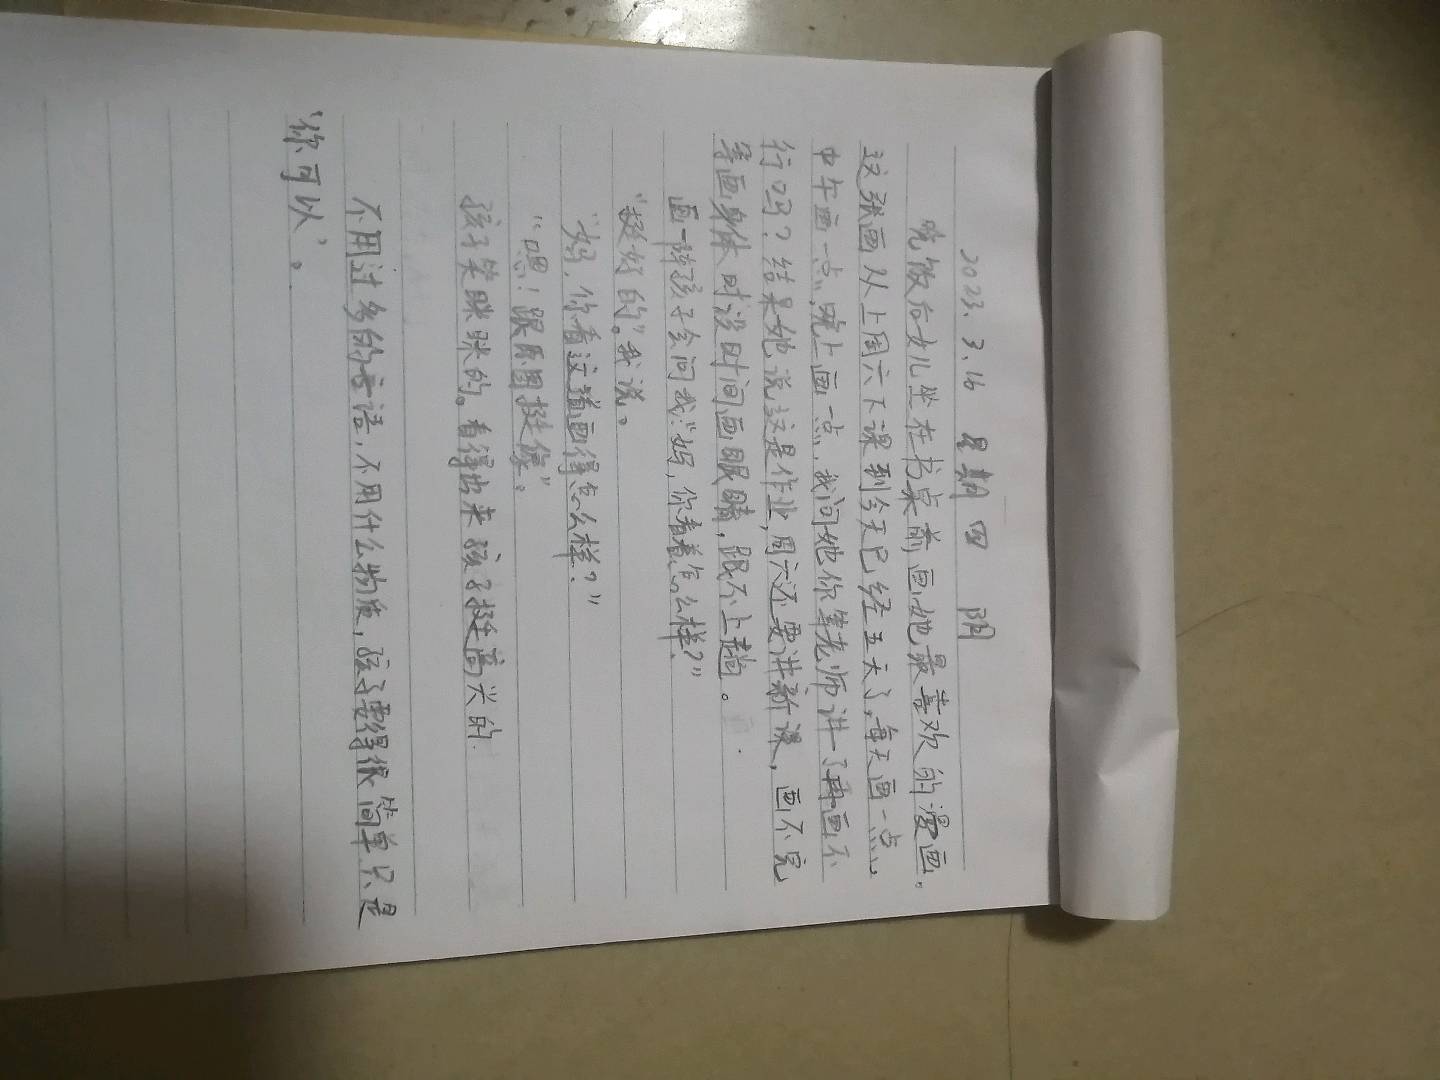 2023.3.16 星期四 阴
晚饭后女儿坐在书桌前画她最喜欢的漫画。
这张画从上周六下课到今天已经五天了,每天画一点,
中午画一点,晚上画一点,我问她你等老师讲了再画不
行吗?结果她说这是作业,周六还要讲新课,画不完
等画身体时没时间画眼睛,跟不上趟。
画一阵孩子会问我:“妈,你看着怎么样?”
“挺好的”。我说。
“妈,你看这道画得怎么样?”
“嗯!跟原图挺像”。
孩子笑眯眯的。看得出来孩子挺高兴的.
不用过多的言语,不用什么物质,孩子要得很简单只是
“你可以”。